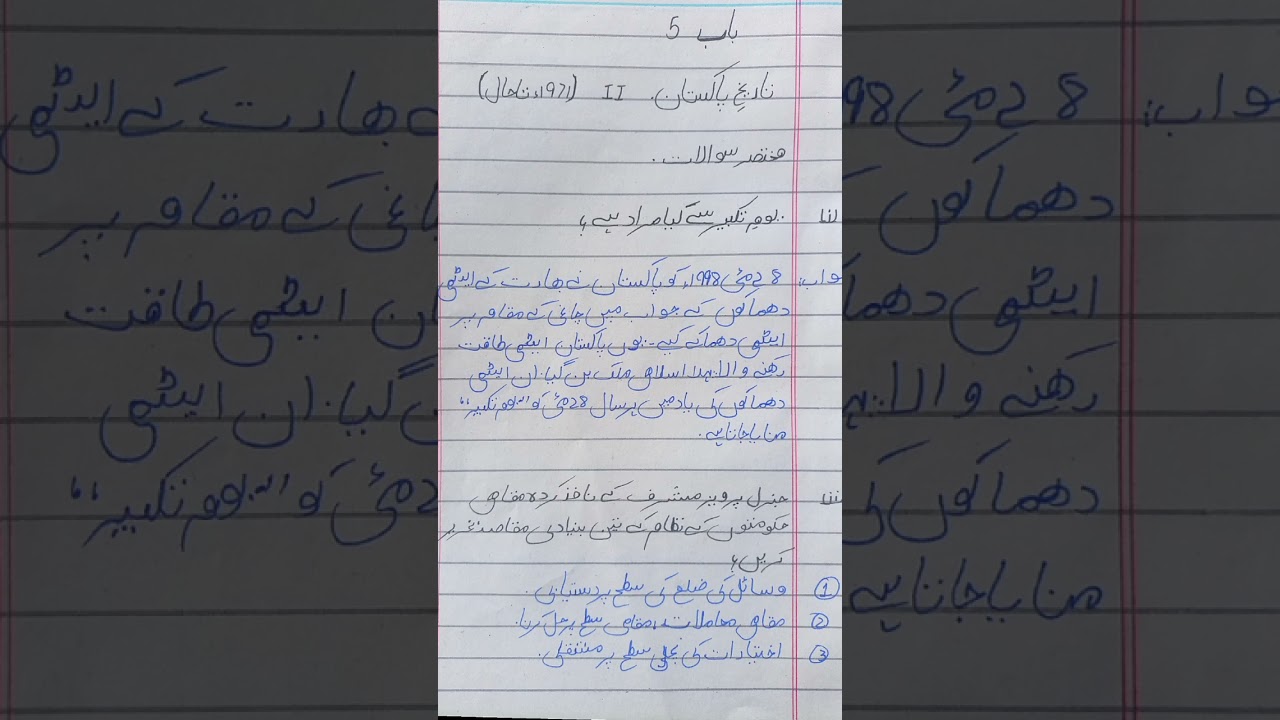 باب 5
تاریخِ پاکستان۔ II (1971ء تا حال)
مختصر سوالات۔
یومِ تکبیر سے کیا مراد ہے؟
جواب: 28 مئی 1998ء کو پاکستان نے بھارت کے ایٹمی
دھماکوں کے جواب میں چاغی کے مقام پر
ایٹمی دھماکے کیے۔ یوں پاکستان ایٹمی طاقت
رکھنے والا پہلا اسلامی ملک بن گیا۔ ان ایٹمی
دھماکوں کی یاد میں ہر سال 28 مئی کو "یوم تکبیر"
منایا جاتا ہے۔
جنرل پرویز مشرف کے نافذ کردہ مقامی
حکومتوں کے نظام کے تین بنیادی مقاصد تحریر
کریں؟
① وسائل کی ضلع کی سطح پر دستیابی۔
② مقامی معاملات، مقامی سطح پر حل کرنا۔
③ اختیارات کی نچلی سطح پر منتقلی۔